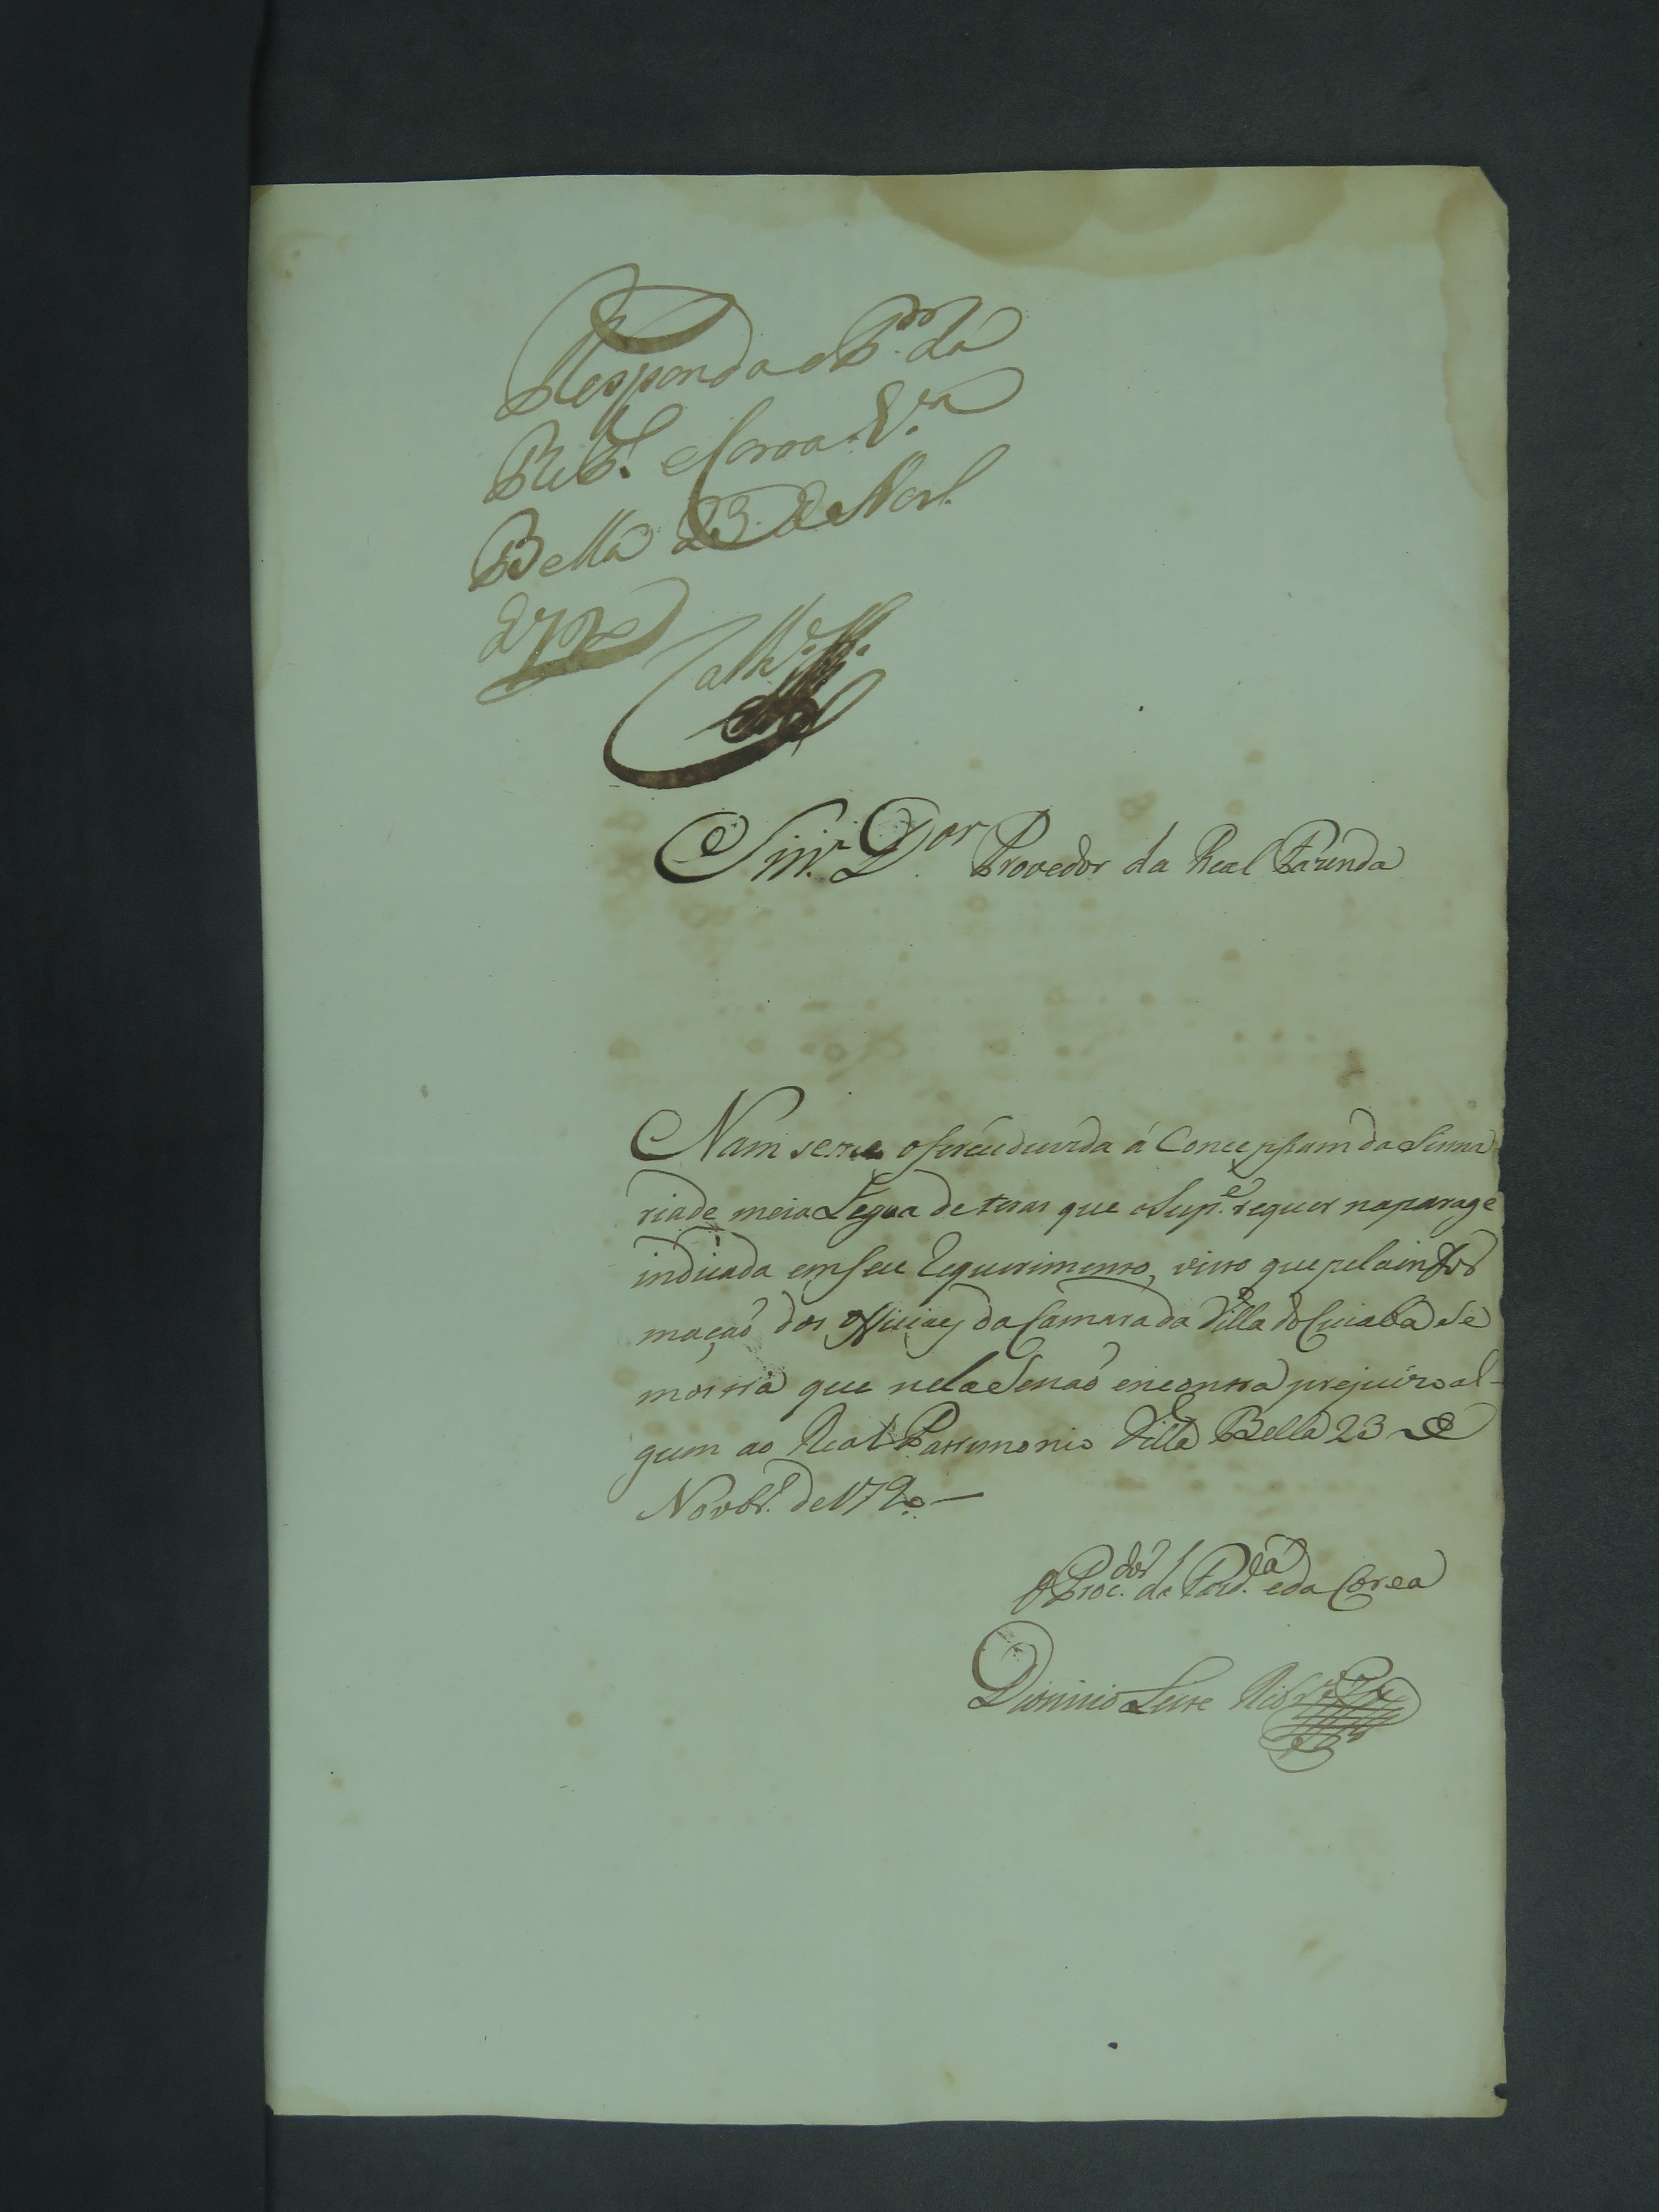 Responda o P.dor da
e Coroa. V.a
Bella 23 de Novb.
Snr. D.or Provedor da Real Fazenda
Nam se me oferece duvida á Concepssam da Sisma
ria de meia Legua de teras que o Sup.e requer na parage
indicada em seu Requirimento, visto que pela infor
mação dos Officiaes da Camara da Villa do Cuiaba se
mostra que nela se não encontra prejuizo al-
gum ao Real Patrimonio Villa Bella 23 de
Novbr.o de
O Proc.dor da Fazd.a e da Coroa
Dionizio Leite Rib.ro